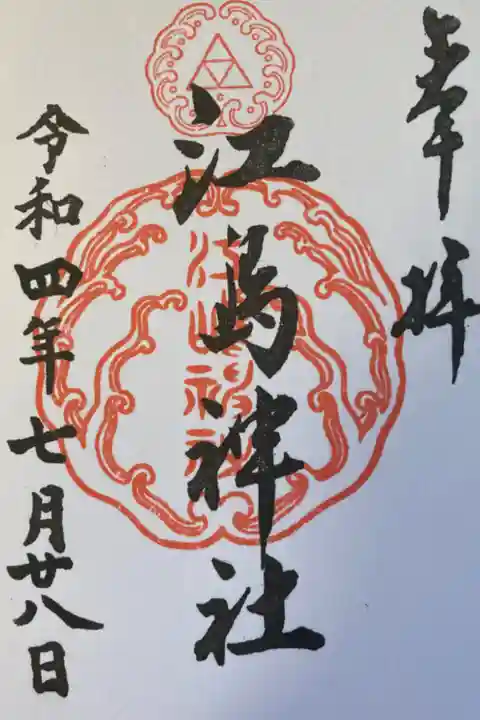 奉拝
江島神社
江嶋神社
令和四年七月廿八日